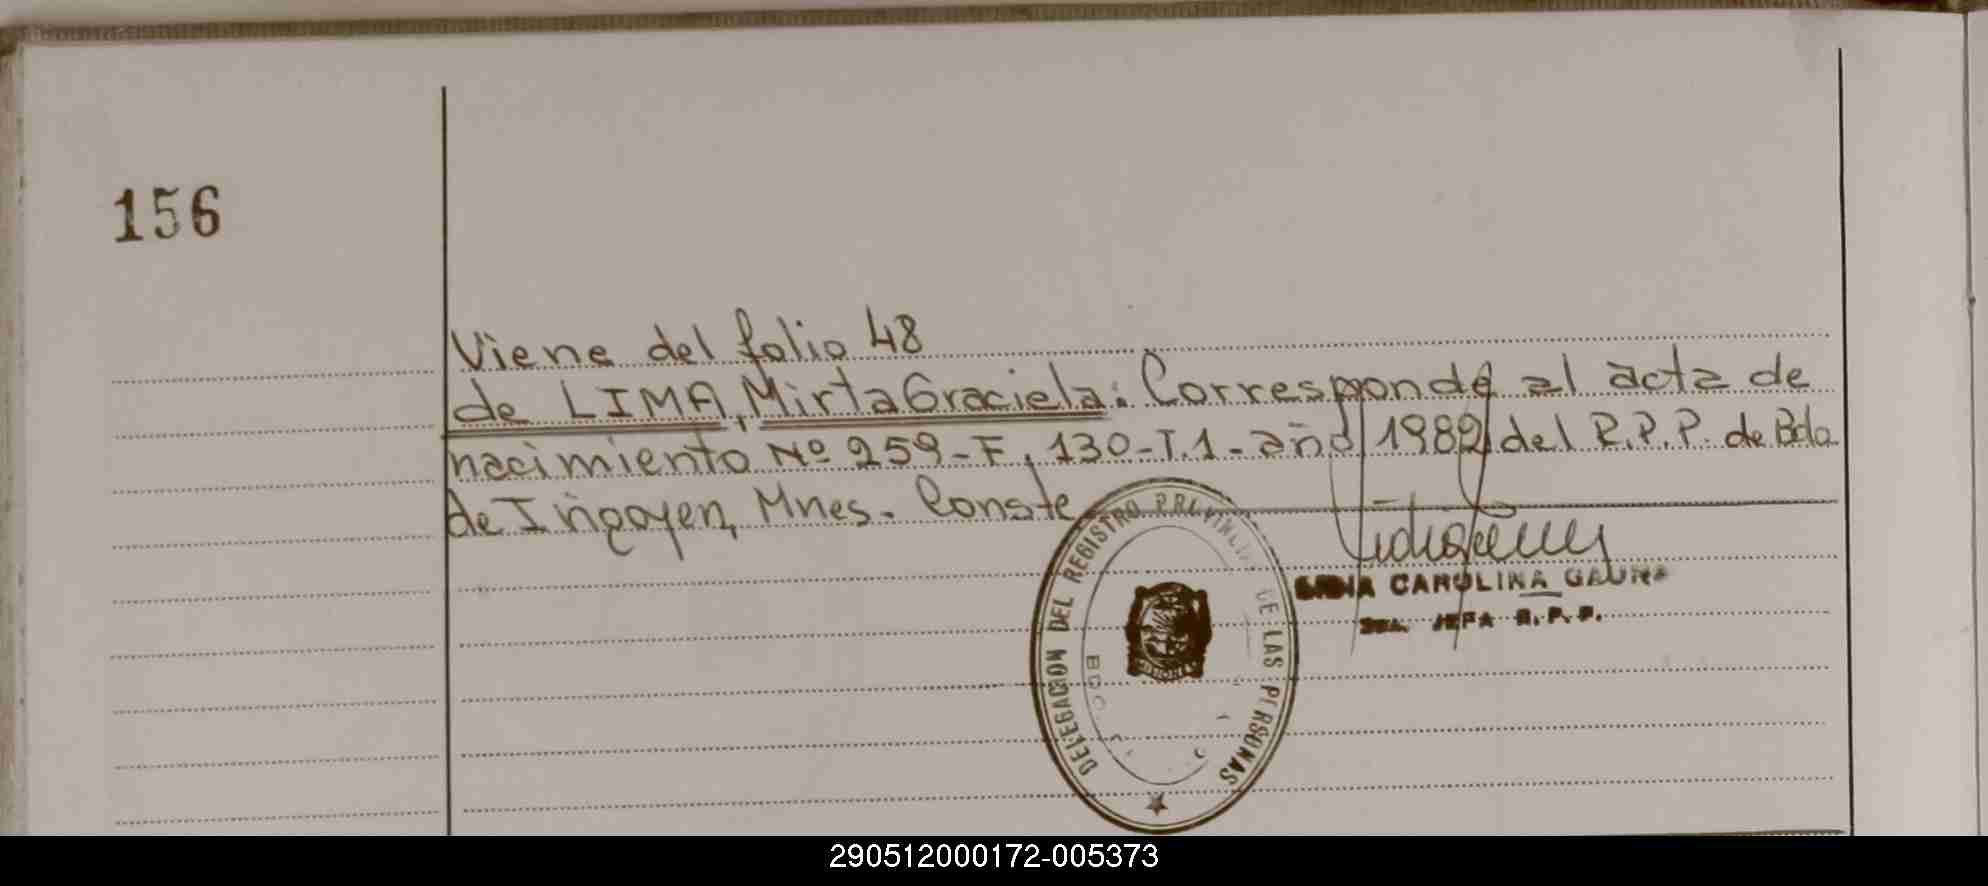 156
Viene del folio 48
de LIMA, Mirta Graciela: Corresponde al acta de
nacimiento Nº 259-F. 130-T.1- año 1982 del R.P.P. de Bdo
de Irigoyen, Mnes. Conste
DELEGACION DEL REGISTRO PROVINCIAL DE LAS PERSONAS
CAROLINA GAUNA
JEFA R.P.P.
290512000172-005373